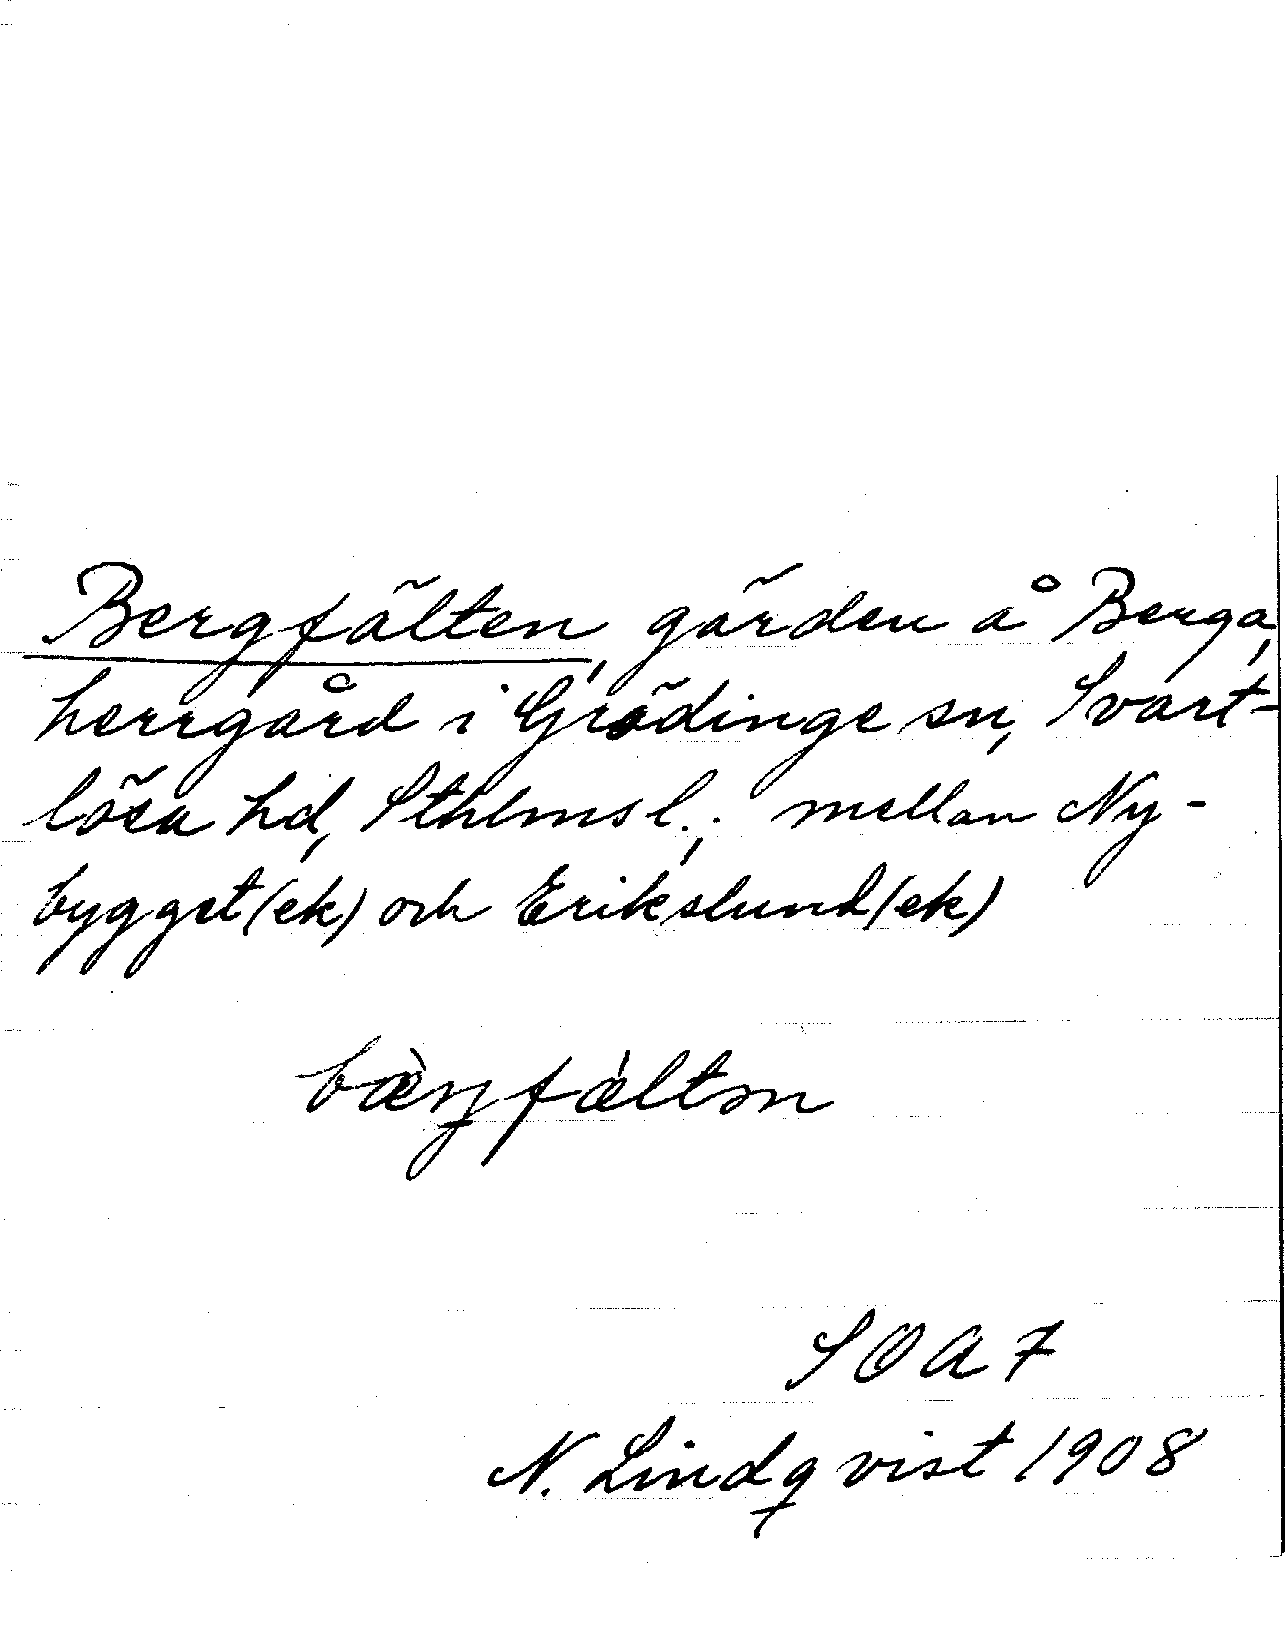 Bergfälten, gärden å Berga,
herrgård i Grödinge sn, Svart-
lösa hd, Sthlms l.; mellan Ny-
bygget (ek) och Erikslund (ek)
SOA 7
N. Lindqvist 1908